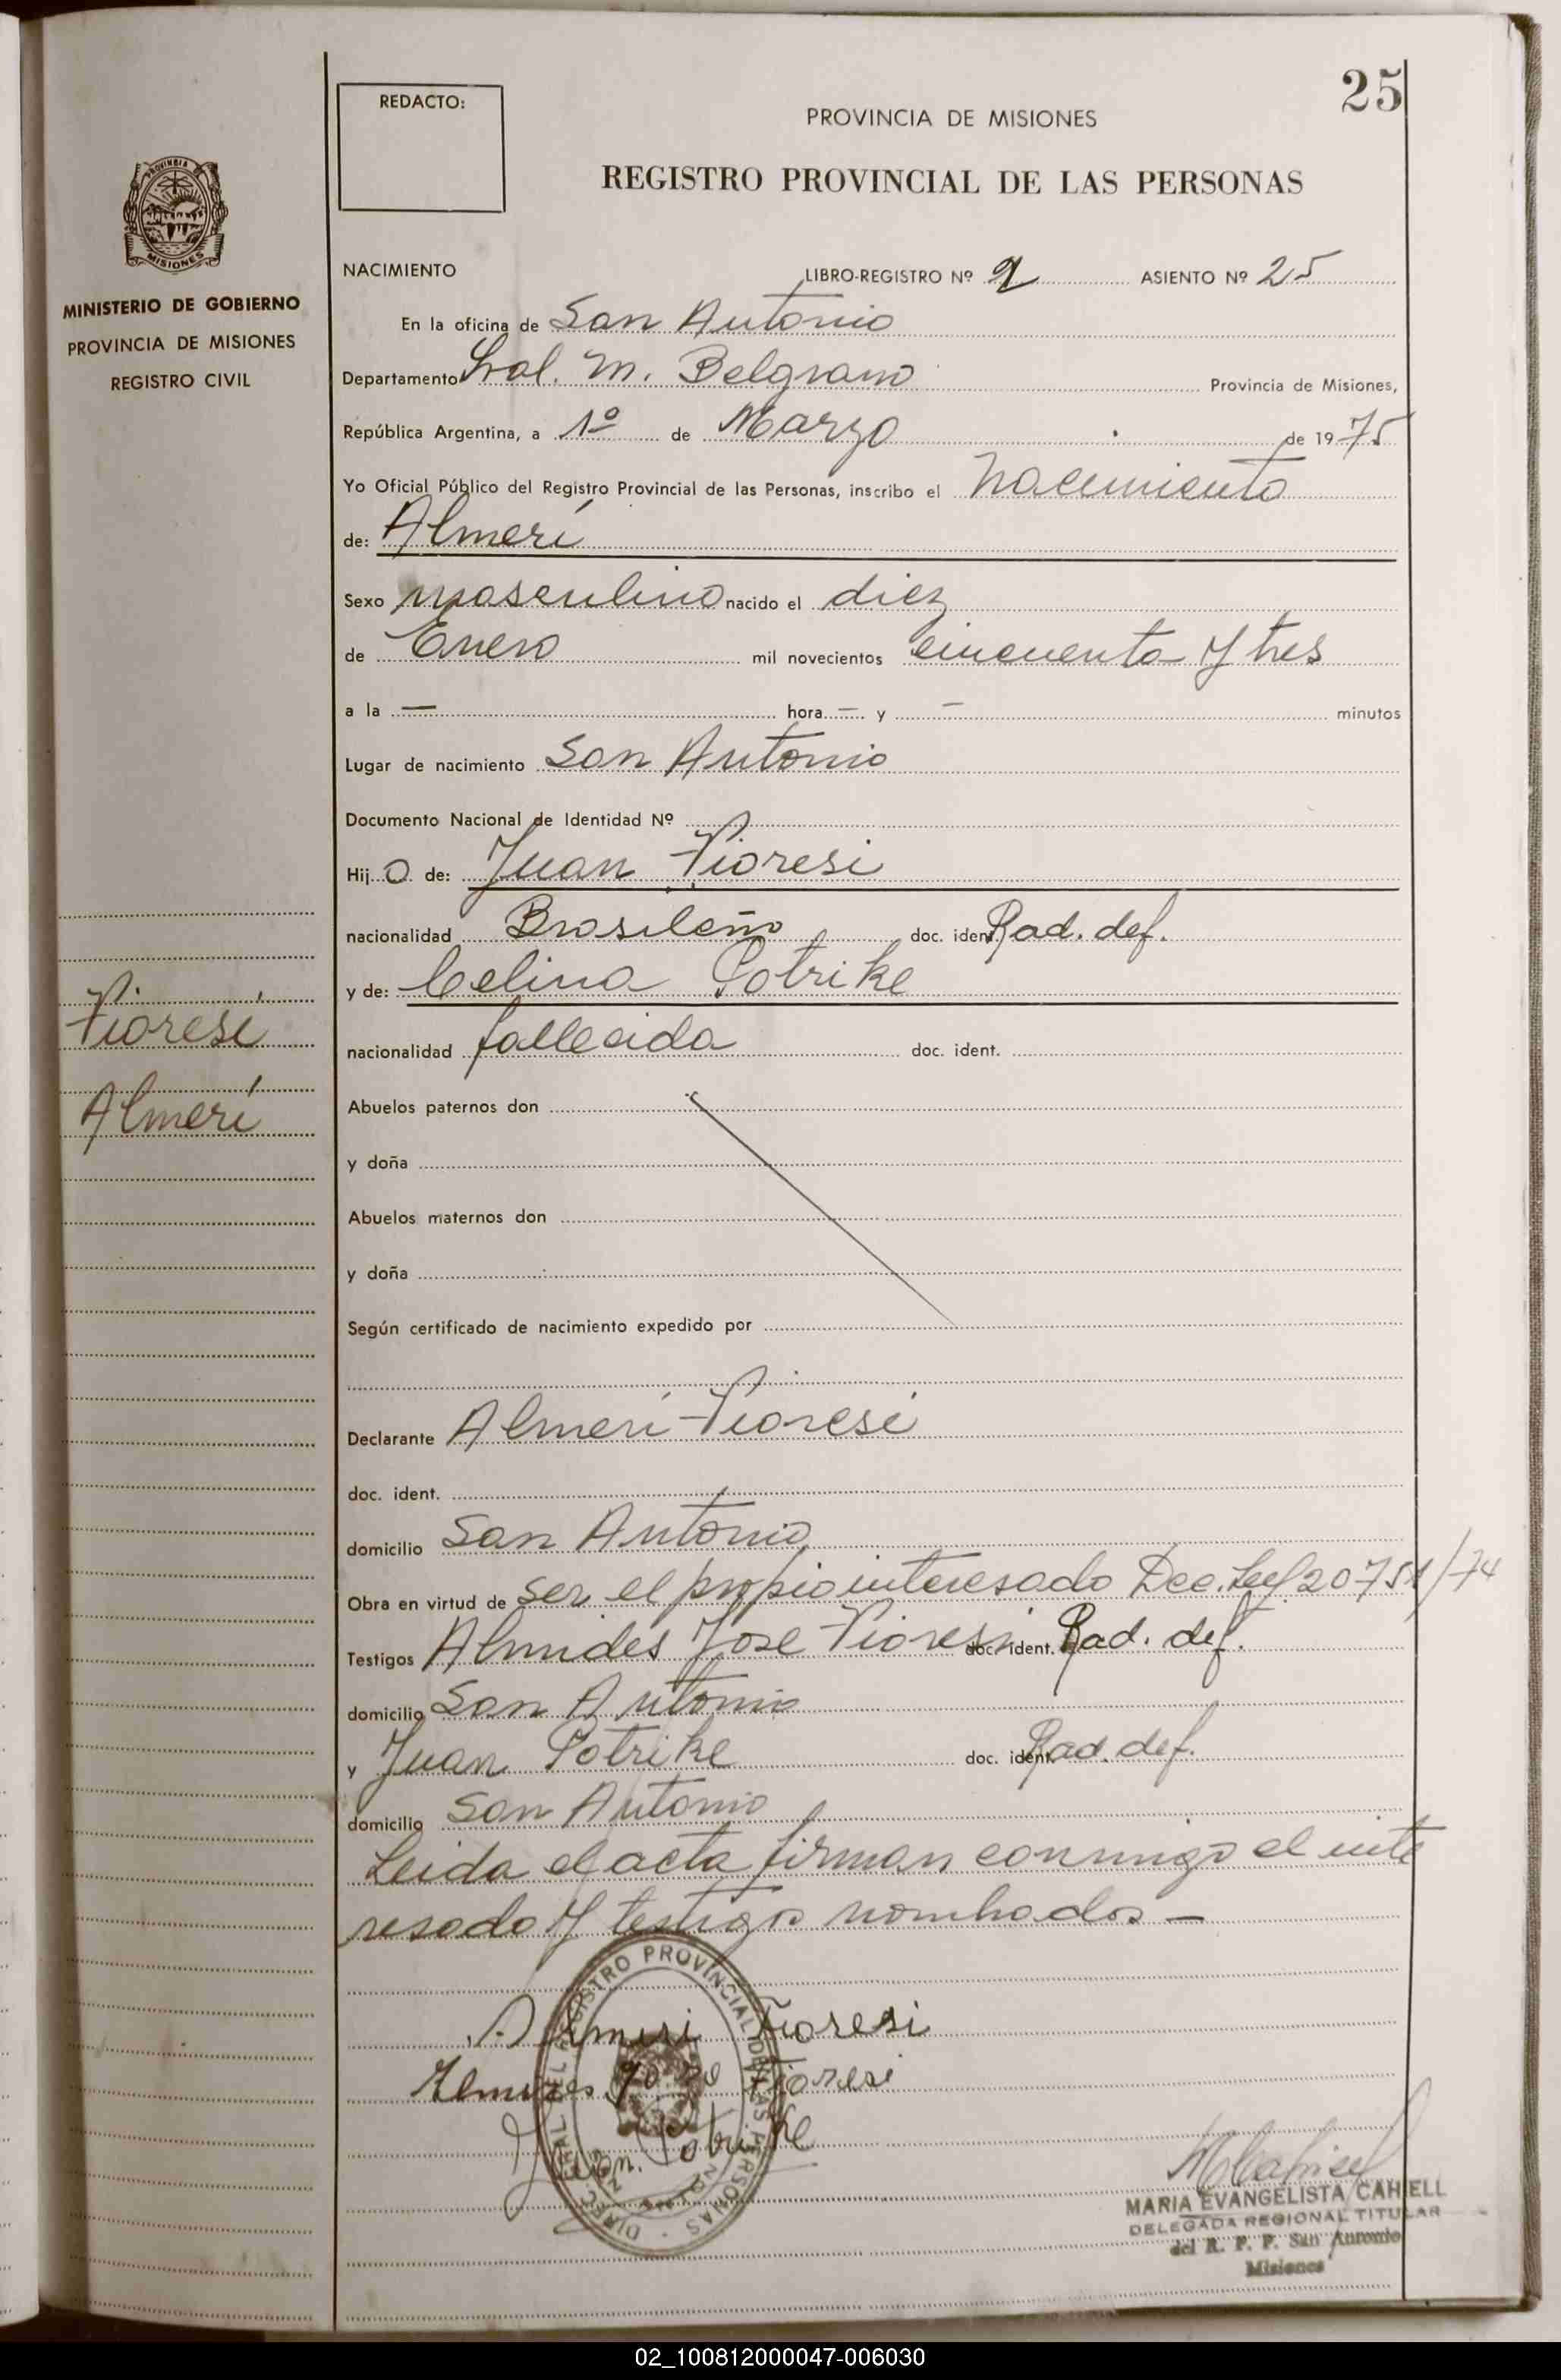 25
REDACTO:
PROVINCIA DE MISIONES
REGISTRO PROVINCIAL DE LAS PERSONAS
PROVINCIA
MISIONES
MINISTERIO DE GOBIERNO
PROVINCIA DE MISIONES
REGISTRO CIVIL
NACIMIENTO LIBRO-REGISTRO Nº 2 ASIENTO Nº 25
En la oficina de San Antonio
Departamento Gral. M. Belgrano Provincia de Misiones,
República Argentina, a 1º de Marzo de 1975
Yo Oficial Público del Registro Provincial de las Personas, inscribo el Nacimiento
de: Almerí
Sexo masculino nacido el diez
de Enero mil novecientos cincuenta y tres
a la — hora — y — minutos
Lugar de nacimiento San Antonio
Documento Nacional de Identidad Nº
Hijo de: Juan Fioresi
nacionalidad Brasileño doc. ident. Rad. def.
y de: Celina Potrike
nacionalidad fallecida doc. ident.
Fioresi
Almerí
Abuelos paternos don
y doña
Abuelos maternos don
y doña
Según certificado de nacimiento expedido por
Declarante Almerí Fioresi
doc. ident.
domicilio San Antonio
Obra en virtud de ser el propio interesado Dec. Ley 20751/74
Testigos Almides Jose Fioresi doc. ident. Rad. def.
domicilio San Antonio
y Juan Potrike doc. ident. Rad. def.
domicilio San Antonio
Leida el acta firman conmigo el inte
resado y testigos nombados —
REGISTRO PROVINCIAL DE LAS PERSONAS
Almeri Fioresi
Almides Jose Fioresi
Juan Potrike
MARIA EVANGELISTA CAHIELL
DELEGADA REGIONAL TITULAR
del R. P. P. San Antonio
Misiones
02_100812000047-006030